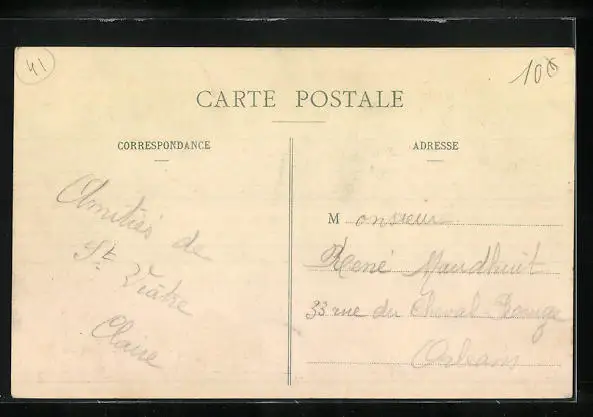 41
10€
CARTE POSTALE
CORRESPONDANCE
ADRESSE
Amitiés de
St. Viâtre
Claire
Monsieur
René Maudhuit
33 rue du Cheval Rouge
Orléans